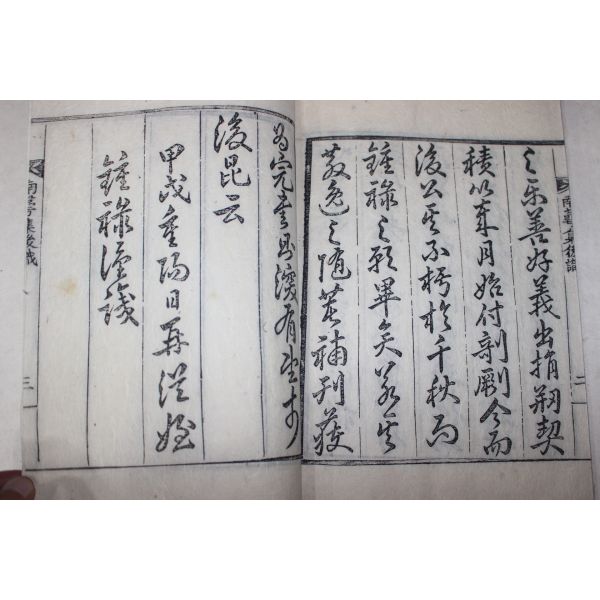 之樂善好義出捐剏契
積以年月始付剞劂今而
後公其不朽於千秋而
鍾祿之願畢矣若其
散逸之隨葺補刊獲
為完書則深有望於
後昆云
甲戌重陽日再從姪
鍾祿謹識
集後識
二
集後識
三